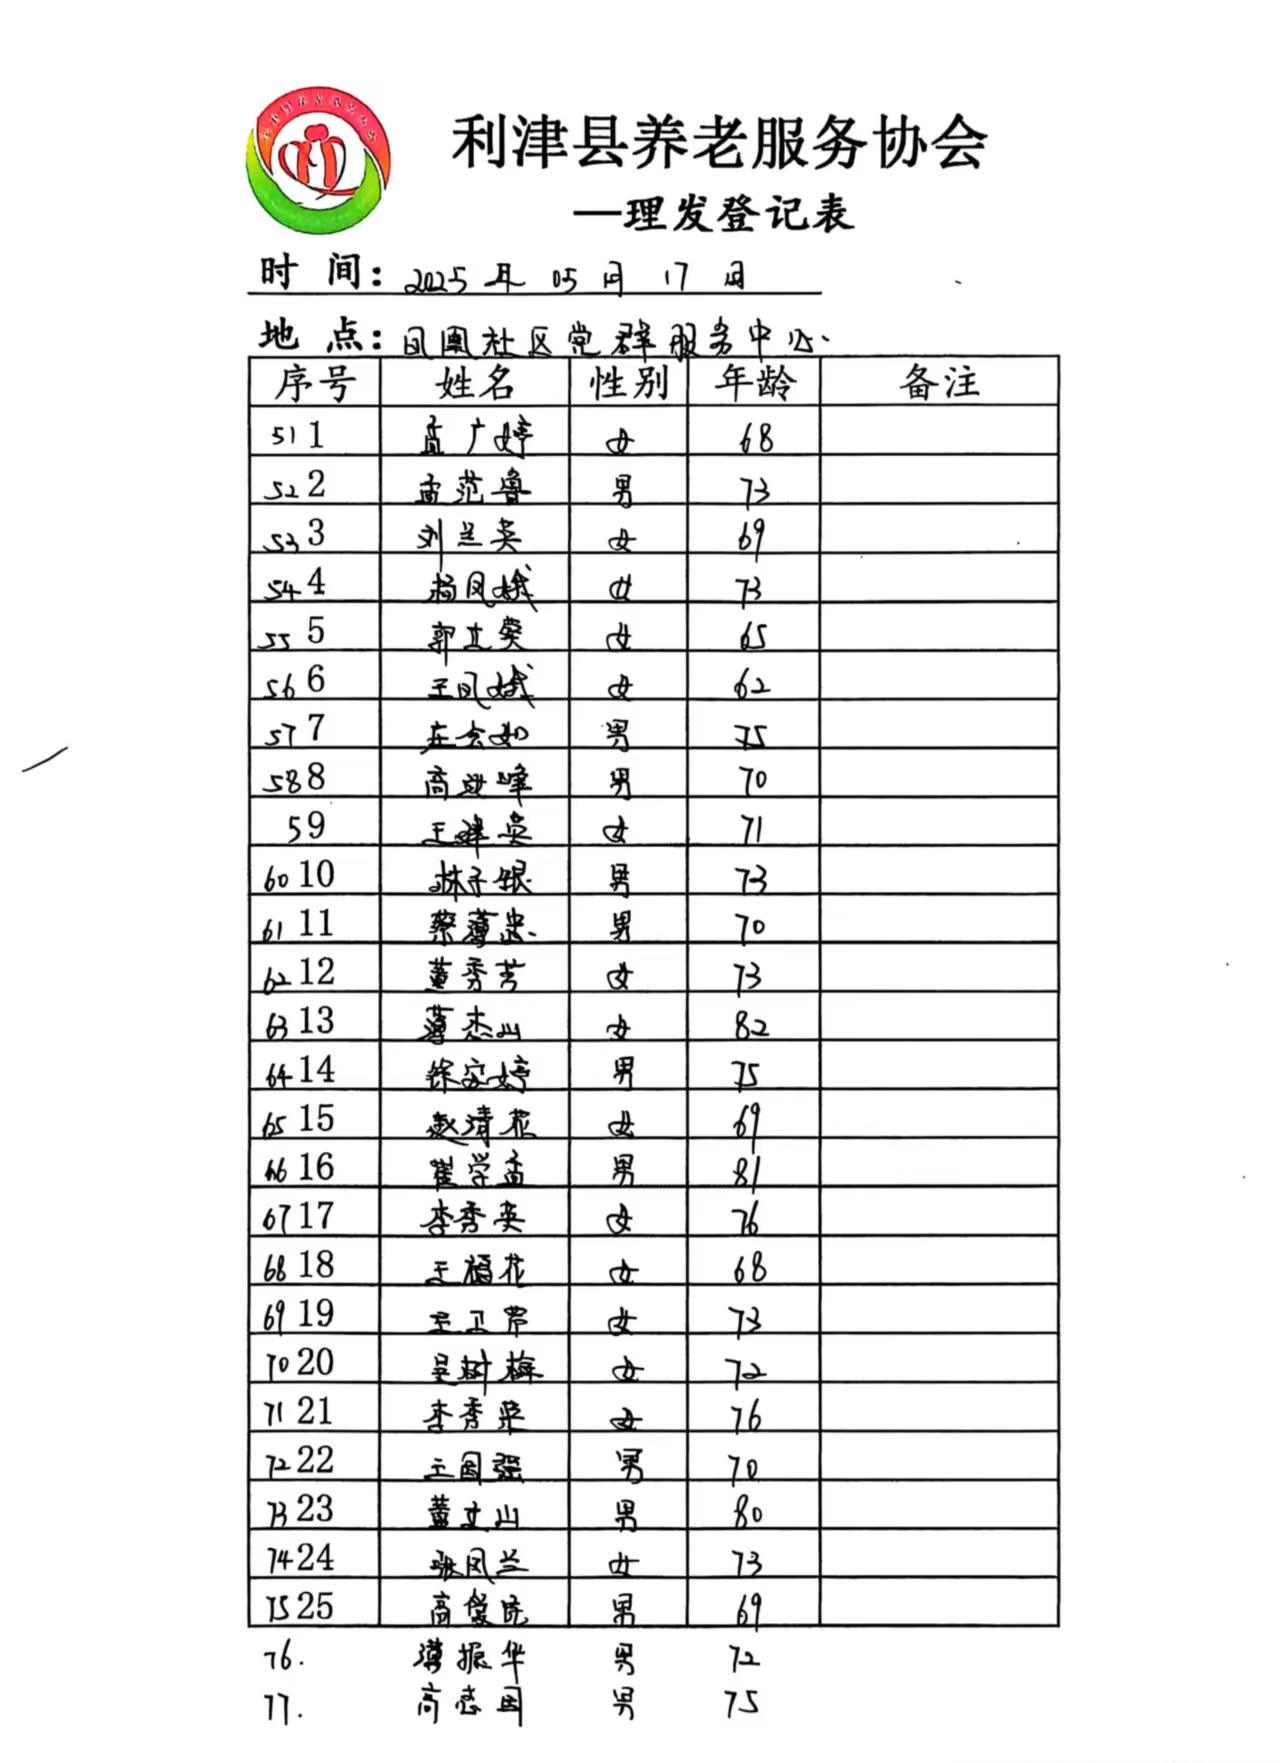 利津县养老服务协会
—理发登记表
时 间： 2025 年 05 月 17 日
地 点： 凤凰社区党群服务中心.
序号 姓名 性别 年龄 备注
51 1 孟广婷 女 68
52 2 孟范鲁 男 73
53 3 刘兰英 女 69
54 4 杨凤娥 女 73
55 5 郭立葵 女 65
56 6 王凤娥 女 62
57 7 庄会如 男 75
58 8 高进峰 男 70
59 王津英 女 71
60 10 林子银 男 73
61 11 蔡薄忠 男 70
62 12 董秀芳 女 73
63 13 薄杰山 女 82
64 14 徐安婷 男 75
65 15 赵清花 女 69
66 16 崔学孟 男 81
67 17 李秀英 女 76
68 18 王福花 女 68
69 19 王卫芹 女 73
70 20 吴树梅 女 72
71 21 李秀荣 女 76
72 22 王国强 男 70
73 23 董文山 男 80
74 24 张凤兰 女 73
75 25 高爱民 男 69
76. 薄振华 男 72
77. 高志国 男 75